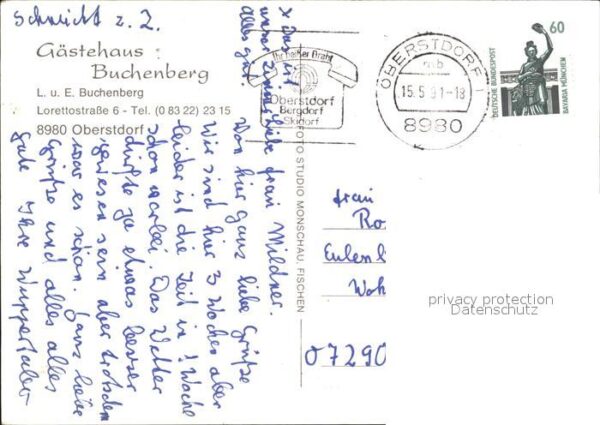 Schmidt z. Z.
Gästehaus
Buchenberg
L. u. E. Buchenberg
Lorettostraße 6 - Tel. (0 83 22) 23 15
8980 Oberstdorf
Ihr heißer Draht
Oberstdorf
Bergdorf
Skidorf
OBERSTDORF 1
mb
15.5.91-18
8980
60
DEUTSCHE BUNDESPOST
BAVARIA MÜNCHEN
FOTO STUDIO MONSCHAU, FISCHEN
x Das ist
unser Zimmer
alles gut.
liebe Frau Mildner.
Von hier ganz liebe Grüße
Wir sind hier 3 Wochen aber
leider ist die Zeit in 1 Woche
schon vorbei. Das Wetter
dürfte ja etwas besser
gewesen sein aber trotzdem
war es schön. Ganz liebe
Grüße und alles alles
gute Ihre Wuppertaler
Frau
Ro
Eulenb
Woh
07290
privacy protection
Datenschutz